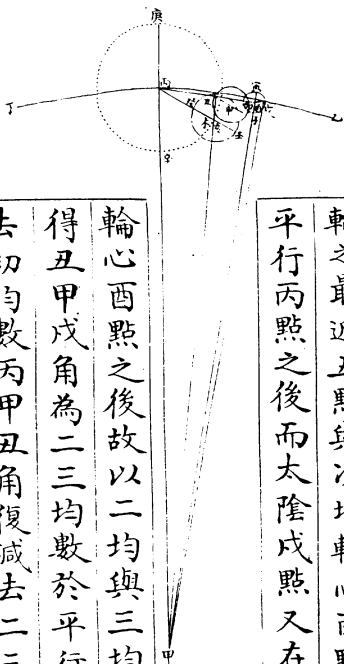 庚
丙
丁
乙
寅
丑
壬
甲
輪之最近丑點與次均輪心酉點
平行丙點之後而太陰戌點又在
輪心酉點之後故以二均與三均
得丑甲戌角為二三均數於平行
去初均數丙甲丑角復減去二三